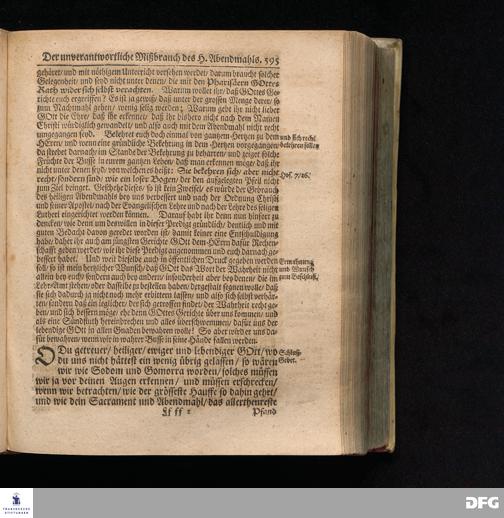 Der unverantwortliche Mißbrauch des H. Abendmahls. 595
gehöret/ und mit nöthigem Unterricht versehen werdet/ darum brauchet solcher
Gelegenheit/ und seyd nicht unter denen/ die mit den Pharisäern GOttes
Rath wider sich selbst verachten. Warum wollet ihr/ daß GOttes Ge-
richte euch ergreiffen? Es ist ja gewiß/ daß unter der grossen Menge derer/ so
zum Nachtmahl gehen/ wenig selig werden; Warum gebt ihr nicht lieber
GOtt die Ehre/ daß ihr erkennet/ daß ihr bißhero nicht nach dem Namen
Christi würdiglich gewandelt/ und also auch mit dem Abendmahl nicht recht
umgegangen seyd. Bekehret euch doch einmal von gantzem Hertzen zu dem
HErrn/ und wenn eine gründliche Bekehrung in dem Hertzen vorgegangen/
da strebet darnach/ im Stande der Bekehrung zu beharren/ und zeiget solche
Früchte der Busse in eurem gantzen Leben/ daß man erkennen möge/ daß ihr
nicht unter denen seyd/ von welchen es heißt: Sie bekehren sich/ aber nicht
recht/ sondern sind/ wie ein loser Bogen/ der den aufgelegten Pfeil nicht
zum Ziel bringet. Geschehe dieses/ so ist kein Zweifel/ es würde der Gebrauch
des heiligen Abendmahls bey uns verbessert/ und nach der Ordnung Christi
und seiner Apostel/ nach der Evangelischen Lehre und nach der Lehre des seligen
Lutheri eingerichtet werden können. Darauf habt ihr denn nun hinfort zu
dencken/ wie denn um deswillen in dieser Predigt gründlich/ deutlich und mit
guten Bedacht davon geredet worden ist/ damit keiner eine Entschuldigung
habe/ daher ihr auch am jüngsten Gerichte GOtt dem HErrn dafür Rechen-
schafft geben werdet/ wie ihr diese Predigt angenommen und euch darnach ge-
bessert habet. Und weil dieselbe auch in öffentlichen Druck gegeben werden
soll/ so ist mein hertzlicher Wunsch/ daß GOtt das Wort der Wahrheit nicht
allein bey euch/ sondern auch bey andern/ insonderheit aber bey denen/ die im
Lehr-Amt stehen/ oder dasselbe zu bestellen haben/ dergestalt segnen wolle/ daß
sie sich dadurch ja nicht noch mehr erbittern lassen/ und also sich selbst verhär-
ten/ sondern daß ein ieglicher/ der sich getroffen findet/ der Wahrheit recht ge-
ben/ und sich bessern möge/ ehe denn GOttes Gerichte über uns kommen/ und
als eine Sündfluth hereinbrechen und alles überschwemmen/ dafür uns der
lebendige GOtt in allen Gnaden bewahren wolle! So aber wird er uns da-
für bewahren/ wenn wir in wahrer Busse in seine Hände fallen werden.
und sich recht
bekehren sollen
Hos. 7/16.
Ermahnung
und Wunsch
zum Beschluß.
O Du getreuer/ heiliger/ ewiger und lebendiger GOtt/ wo
du uns nicht hättest ein wenig übrig gelassen/ so wären
wir wie Sodom und Gomorra worden/ solches müssen
wir ja vor deinen Augen erkennen/ und müssen erschrecken/
wenn wir betrachten/ wie der grösseste Hauffe so dahin gehet/
und wie dein Sacrament und Abendmahl/ das allertheureste
Schluß-
Gebet.
Ff ff 2 Pfand
FRANCKESCHE
STIFTUNGEN
DFG